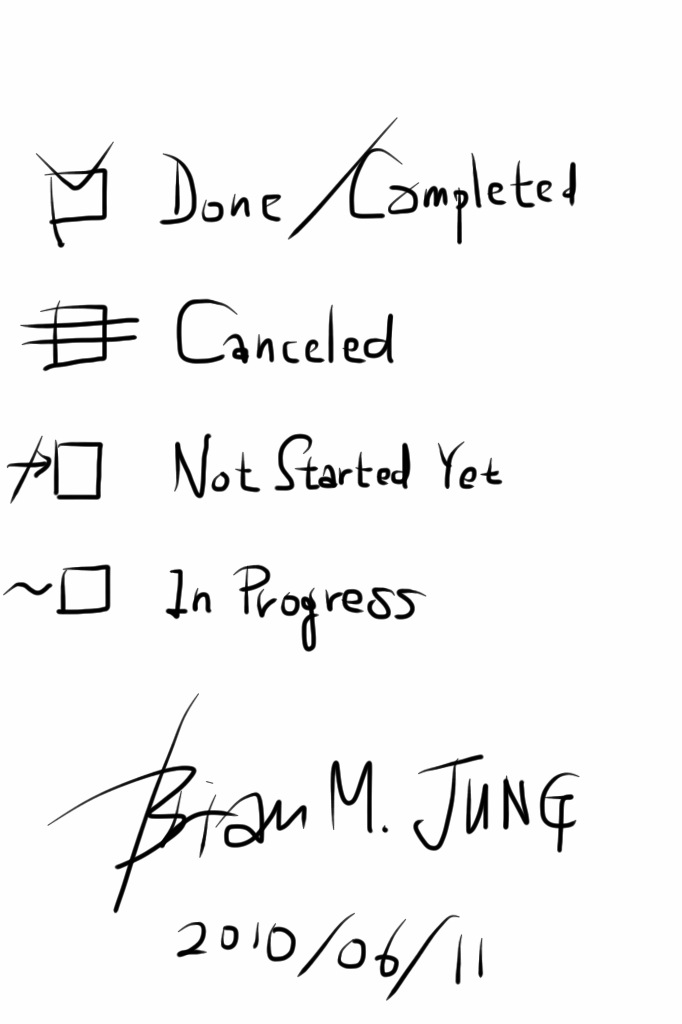 Done/Completed
Canceled
Not Started Yet
In Progress
Brian M. JUNG
2010/06/11